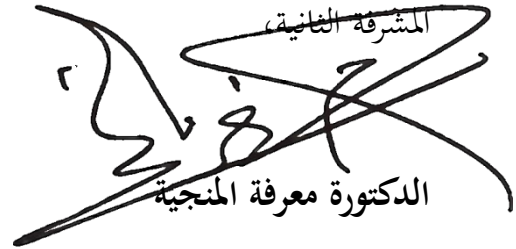 المشرفة الثانية،
الدكتورة معرفة المنجية